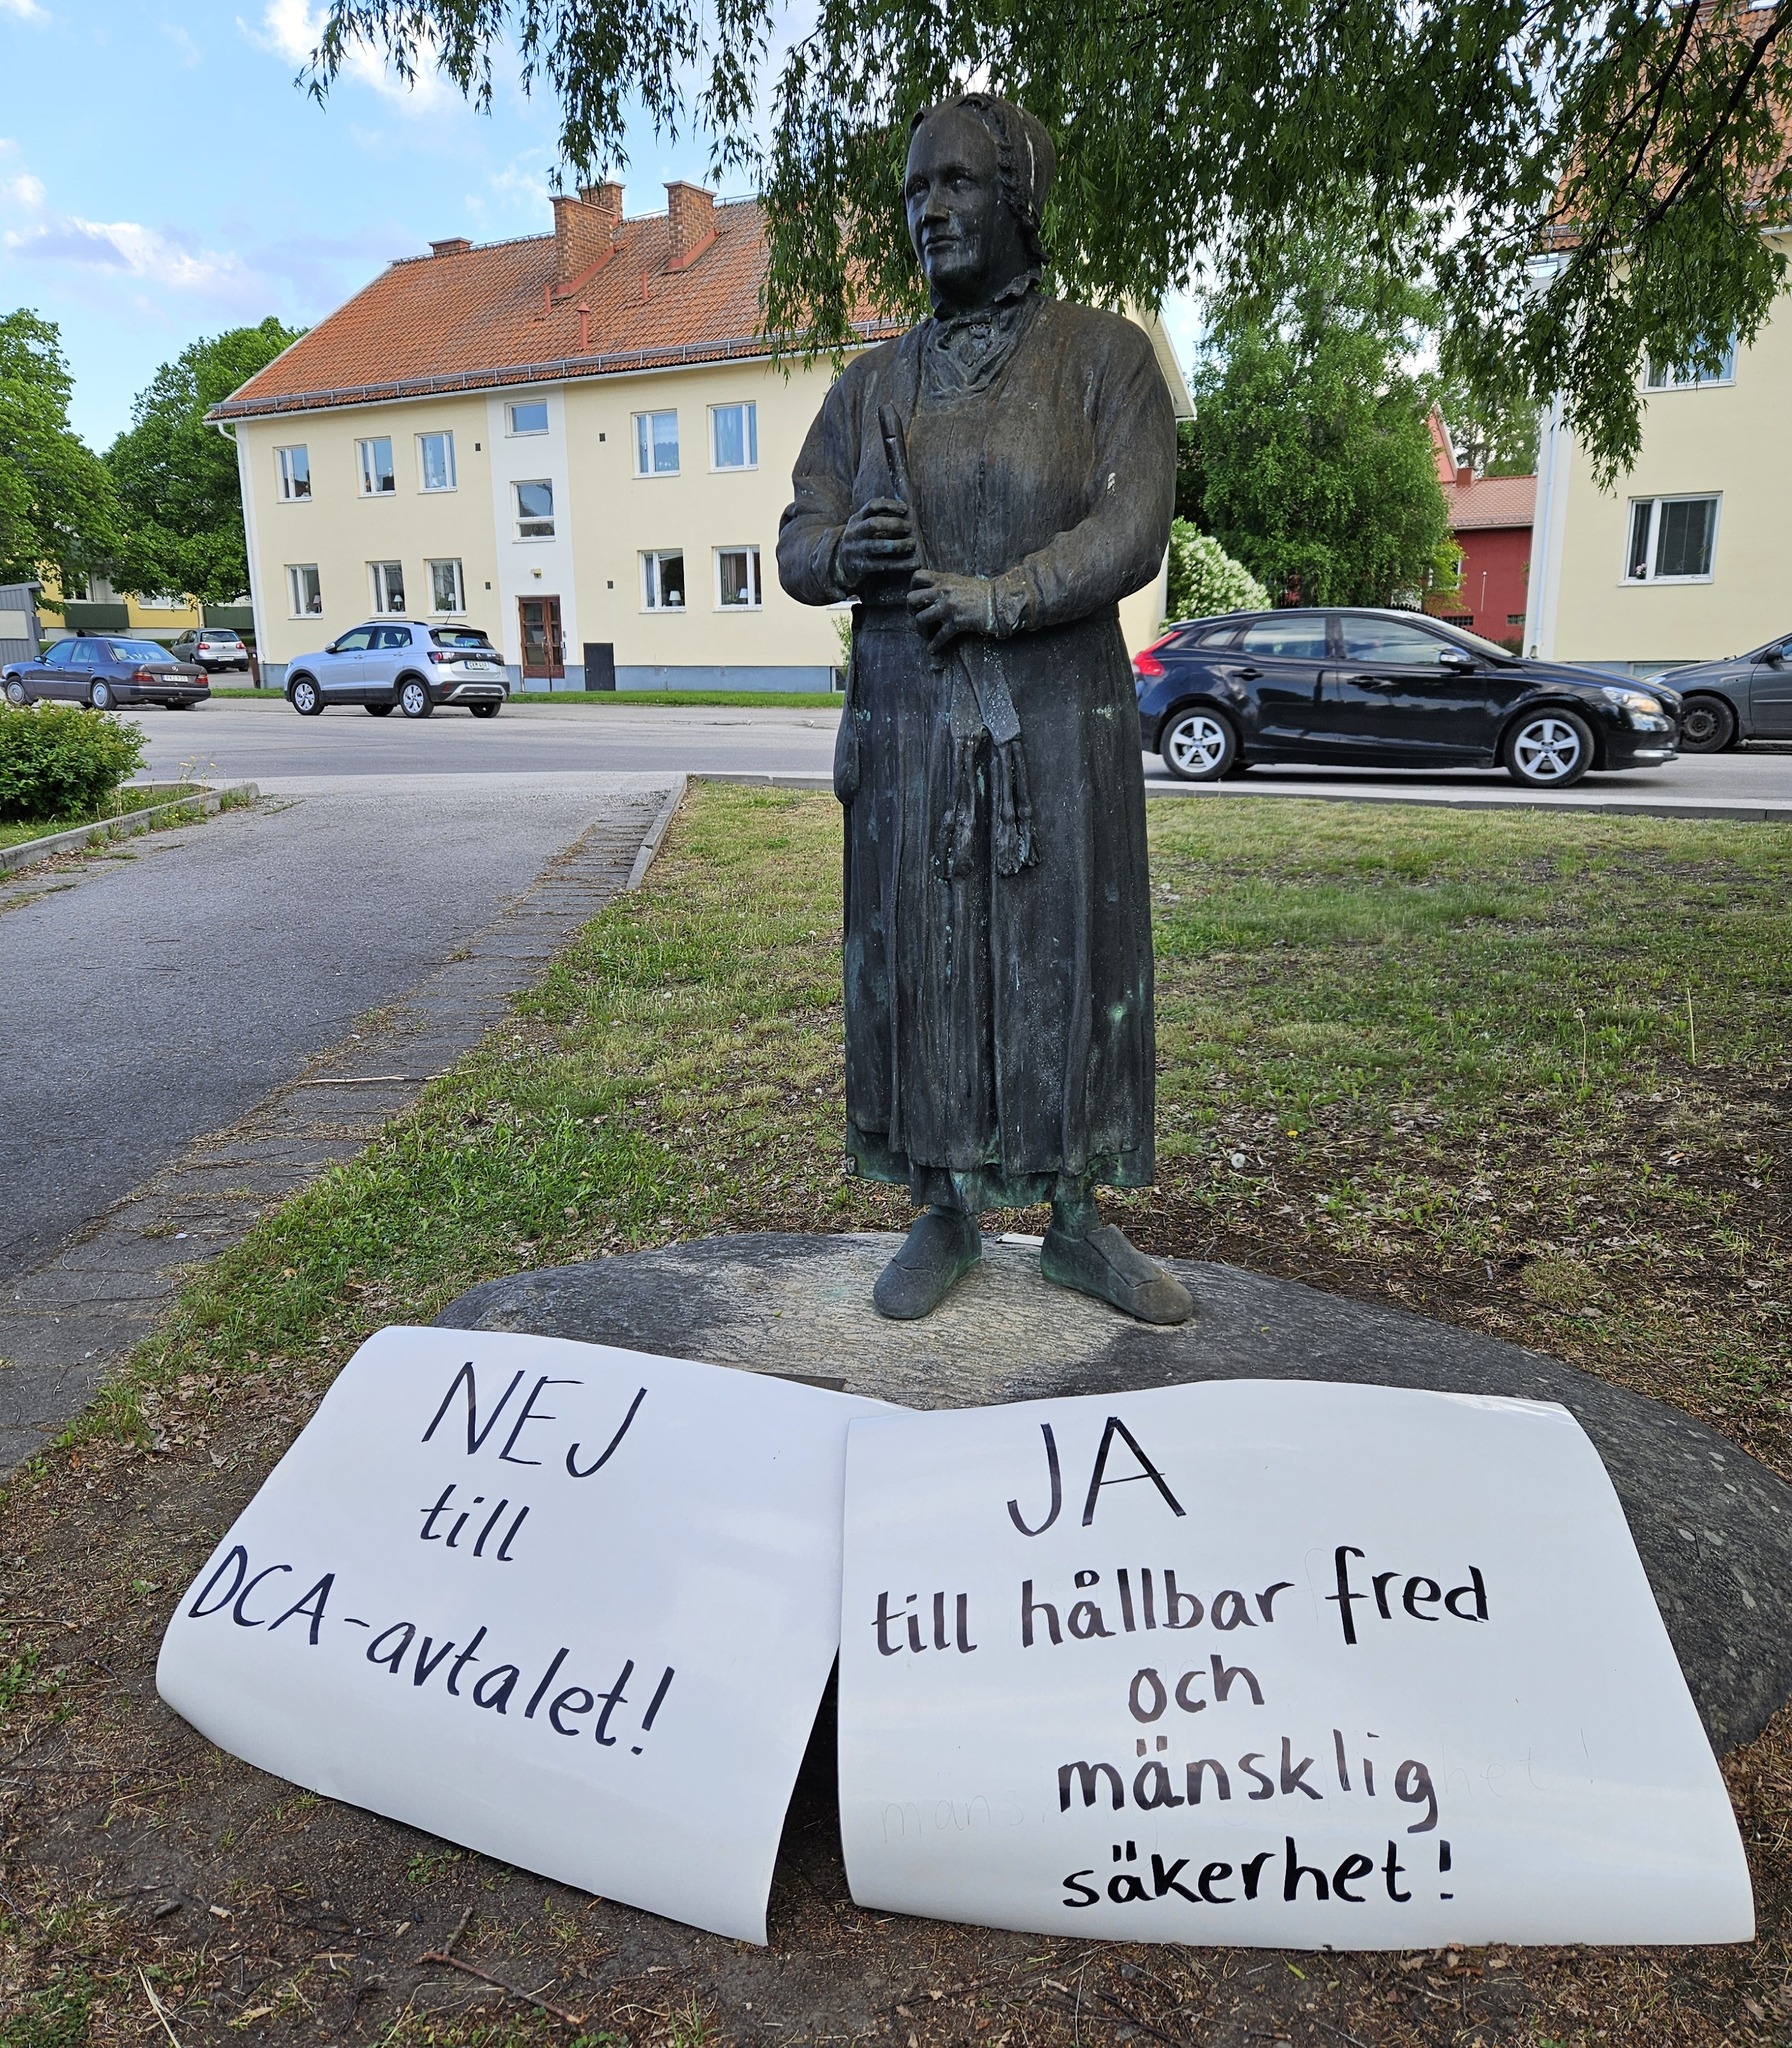 NEJ
till
DCA-avtalet!
JA
till hållbar fred
och
mänsklig
säkerhet!